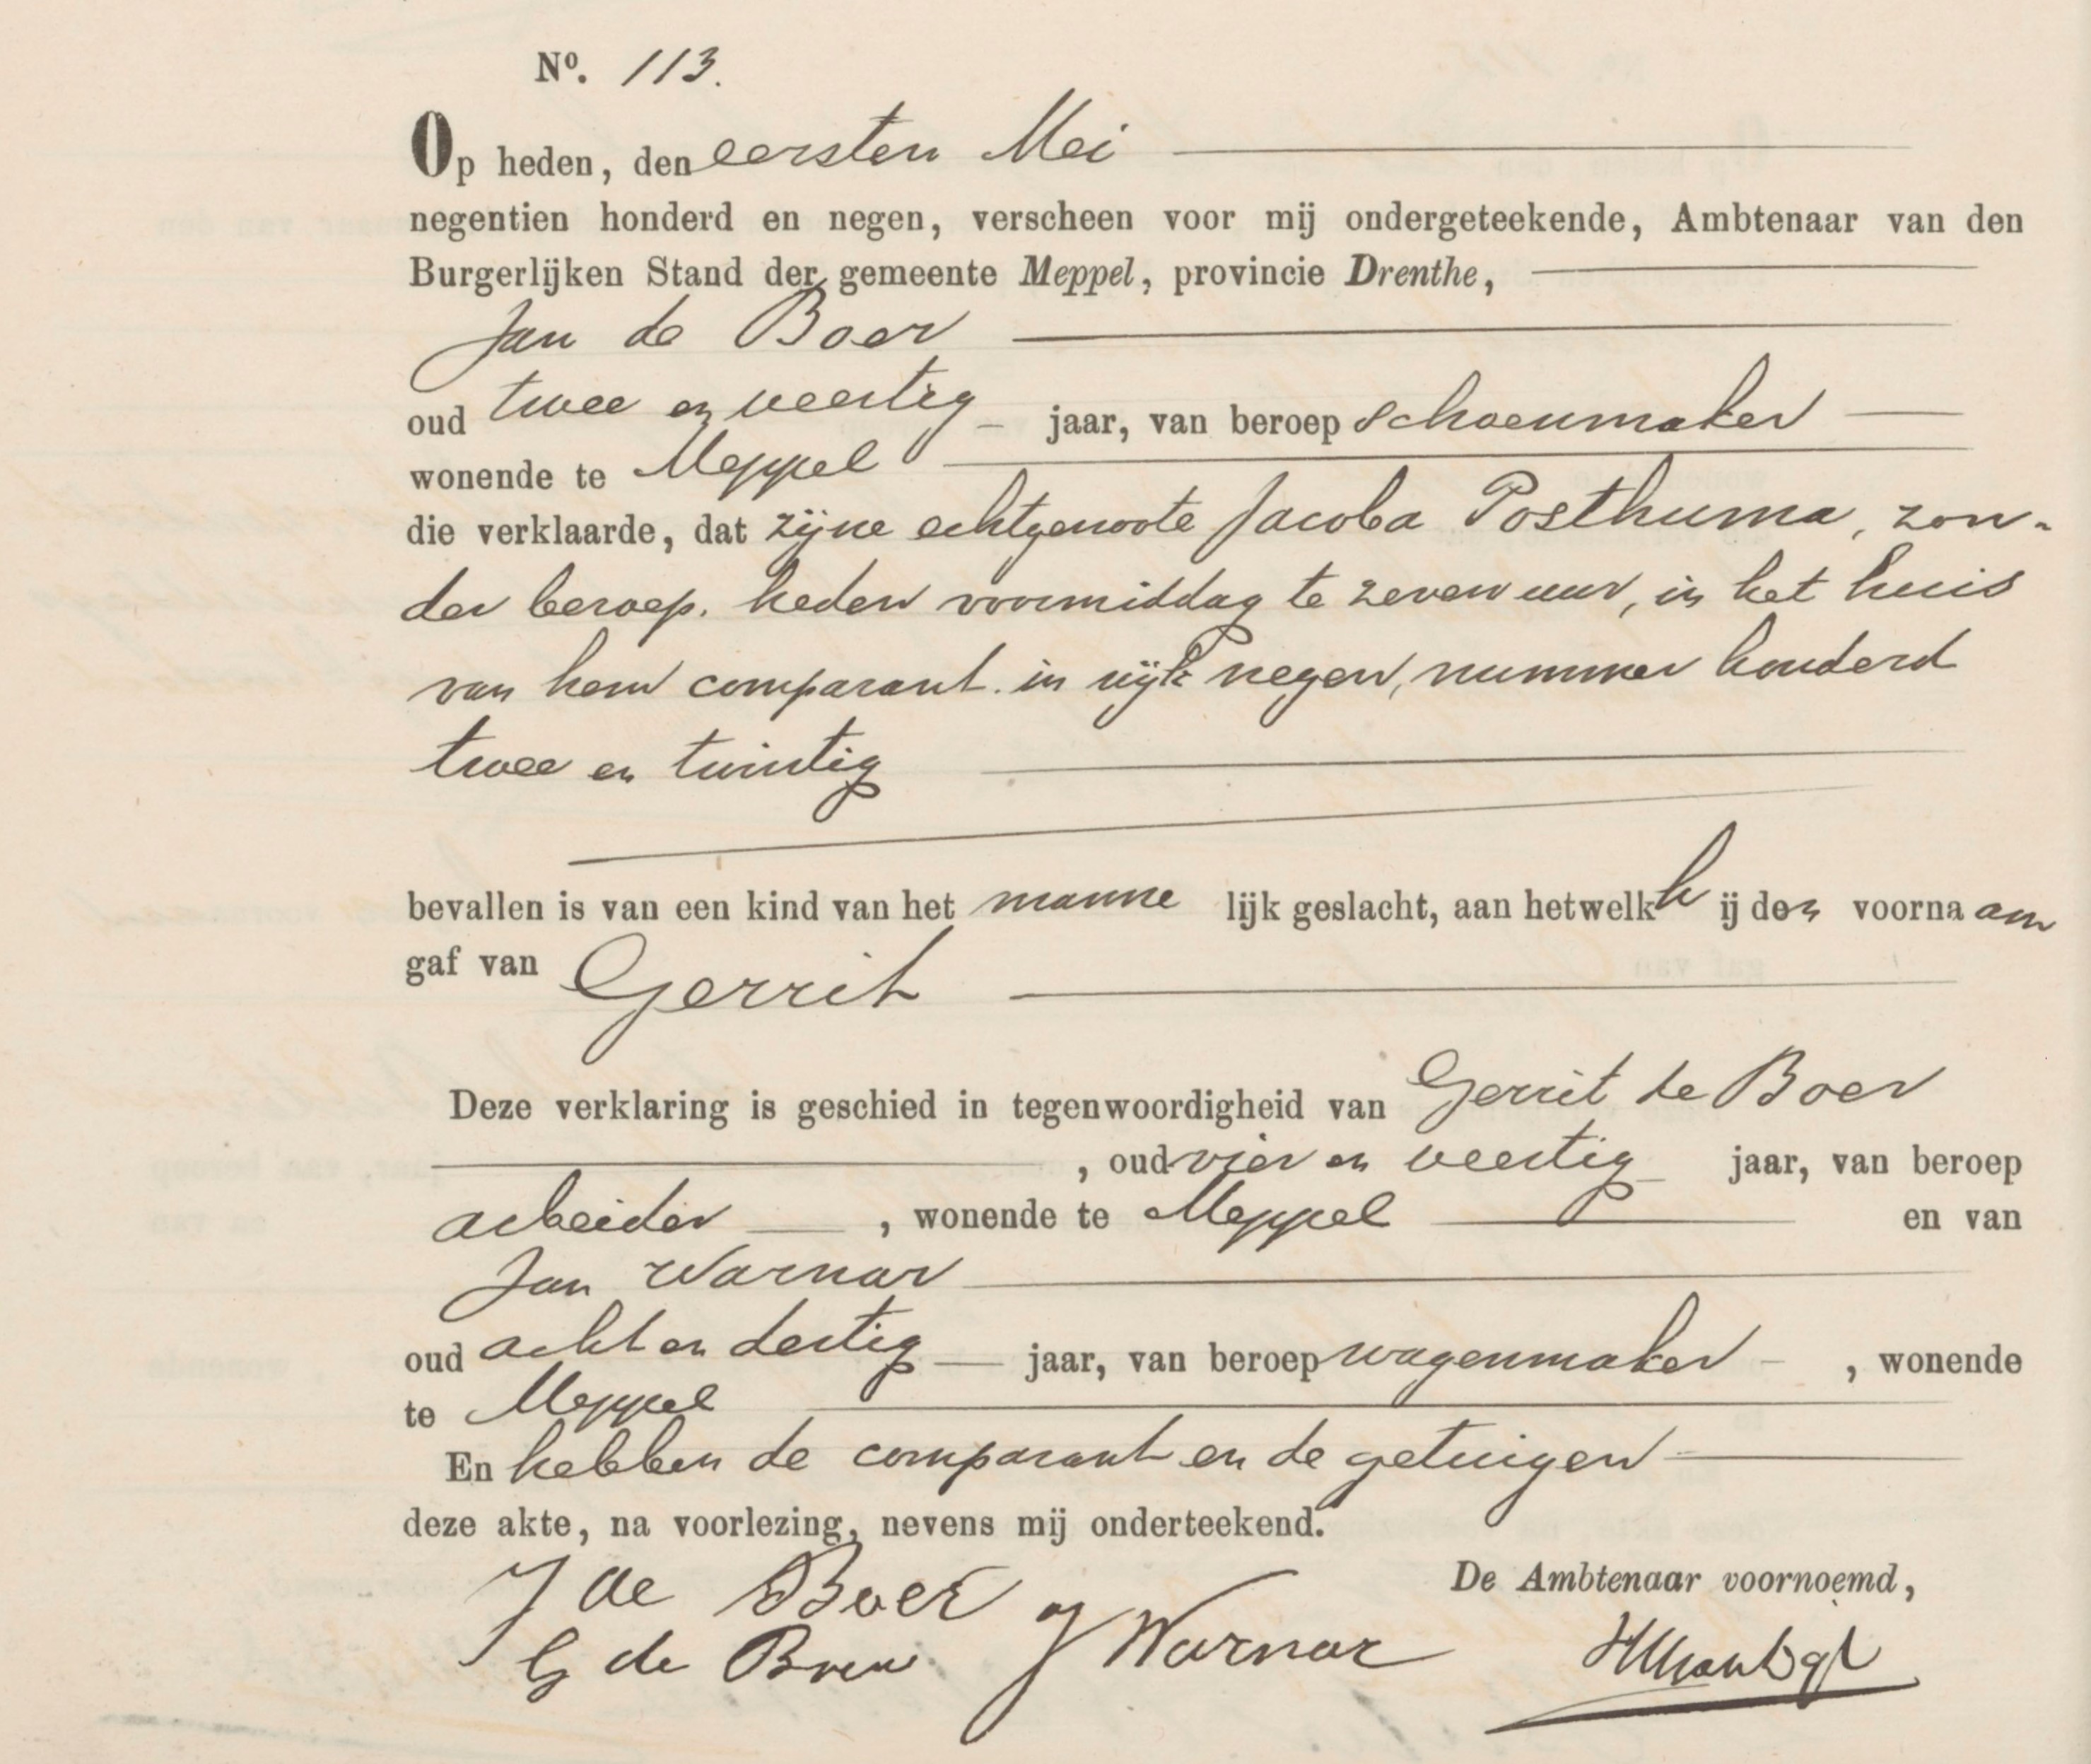 Nº. 113.
Op heden, den eersten Mei
negentien honderd en negen, verscheen voor mij ondergeteekende, Ambtenaar van den
Burgerlijken Stand der gemeente Meppel, provincie Drenthe,
Jan de Boer
oud twee en veertig jaar, van beroep schoenmaker
wonende te Meppel
die verklaarde, dat zijne echtgenoote Jacoba Posthuma, zon-
der beroep. heden voormiddag te zeven uur, in het huis
van hem comparant. in wijk negen, nummer honderd
twee en twintig
bevallen is van een kind van het manne lijk geslacht, aan hetwelk h ij den voorna am
gaf van Gerrit
Deze verklaring is geschied in tegenwoordigheid van Gerrit de Boer
, oud vier en veertig jaar, van beroep
arbeider , wonende te Meppel en van
Jan Warnar
oud acht en dertig jaar, van beroep wagenmaker , wonende
te Meppel
En hebben de comparant en de getuigen
deze akte, na voorlezing, nevens mij onderteekend.
De Ambtenaar voornoemd,
J de Boer
G de Boer J Warnar